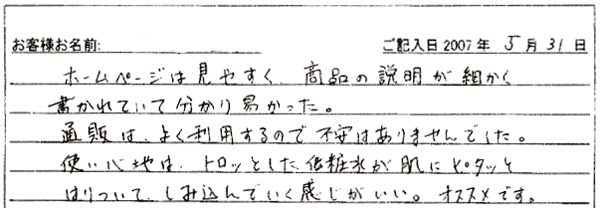 お客様お名前:
ご記入日2007年 5月 31日
ホームページは見やすく、商品の説明が細かく
書かれていて分かり易かった。
通販は、よく利用するので不安はありませんでした。
使い心地は、トロッとした化粧水が肌にピタッと
はりついて、しみ込んでいく感じがいい。オススメです。